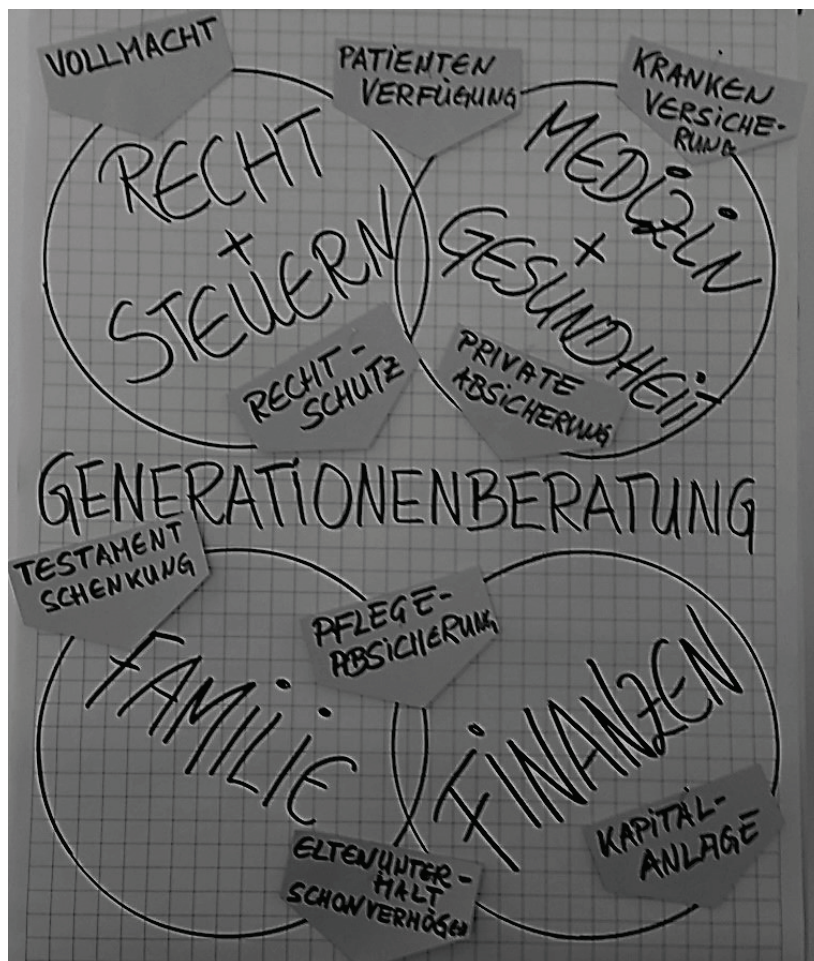 VOLLMACHT
PATIENTEN
VERFÜGUNG
KRANKEN
VERSICHE-
RUNG
RECHT
+
STEUERN
MEDIZIN
+
GESUNDHEIT
RECHT-
SCHUTZ
PRIVATE
ABSICHERUNG
GENERATIONENBERATUNG
TESTAMENT
SCHENKUNG
PFLEGE-
ABSICHERUNG
FAMILIE
FINANZEN
ELTENUNTER-
HALT
SCHONVERMÖGEN
KAPITAL-
ANLAGE